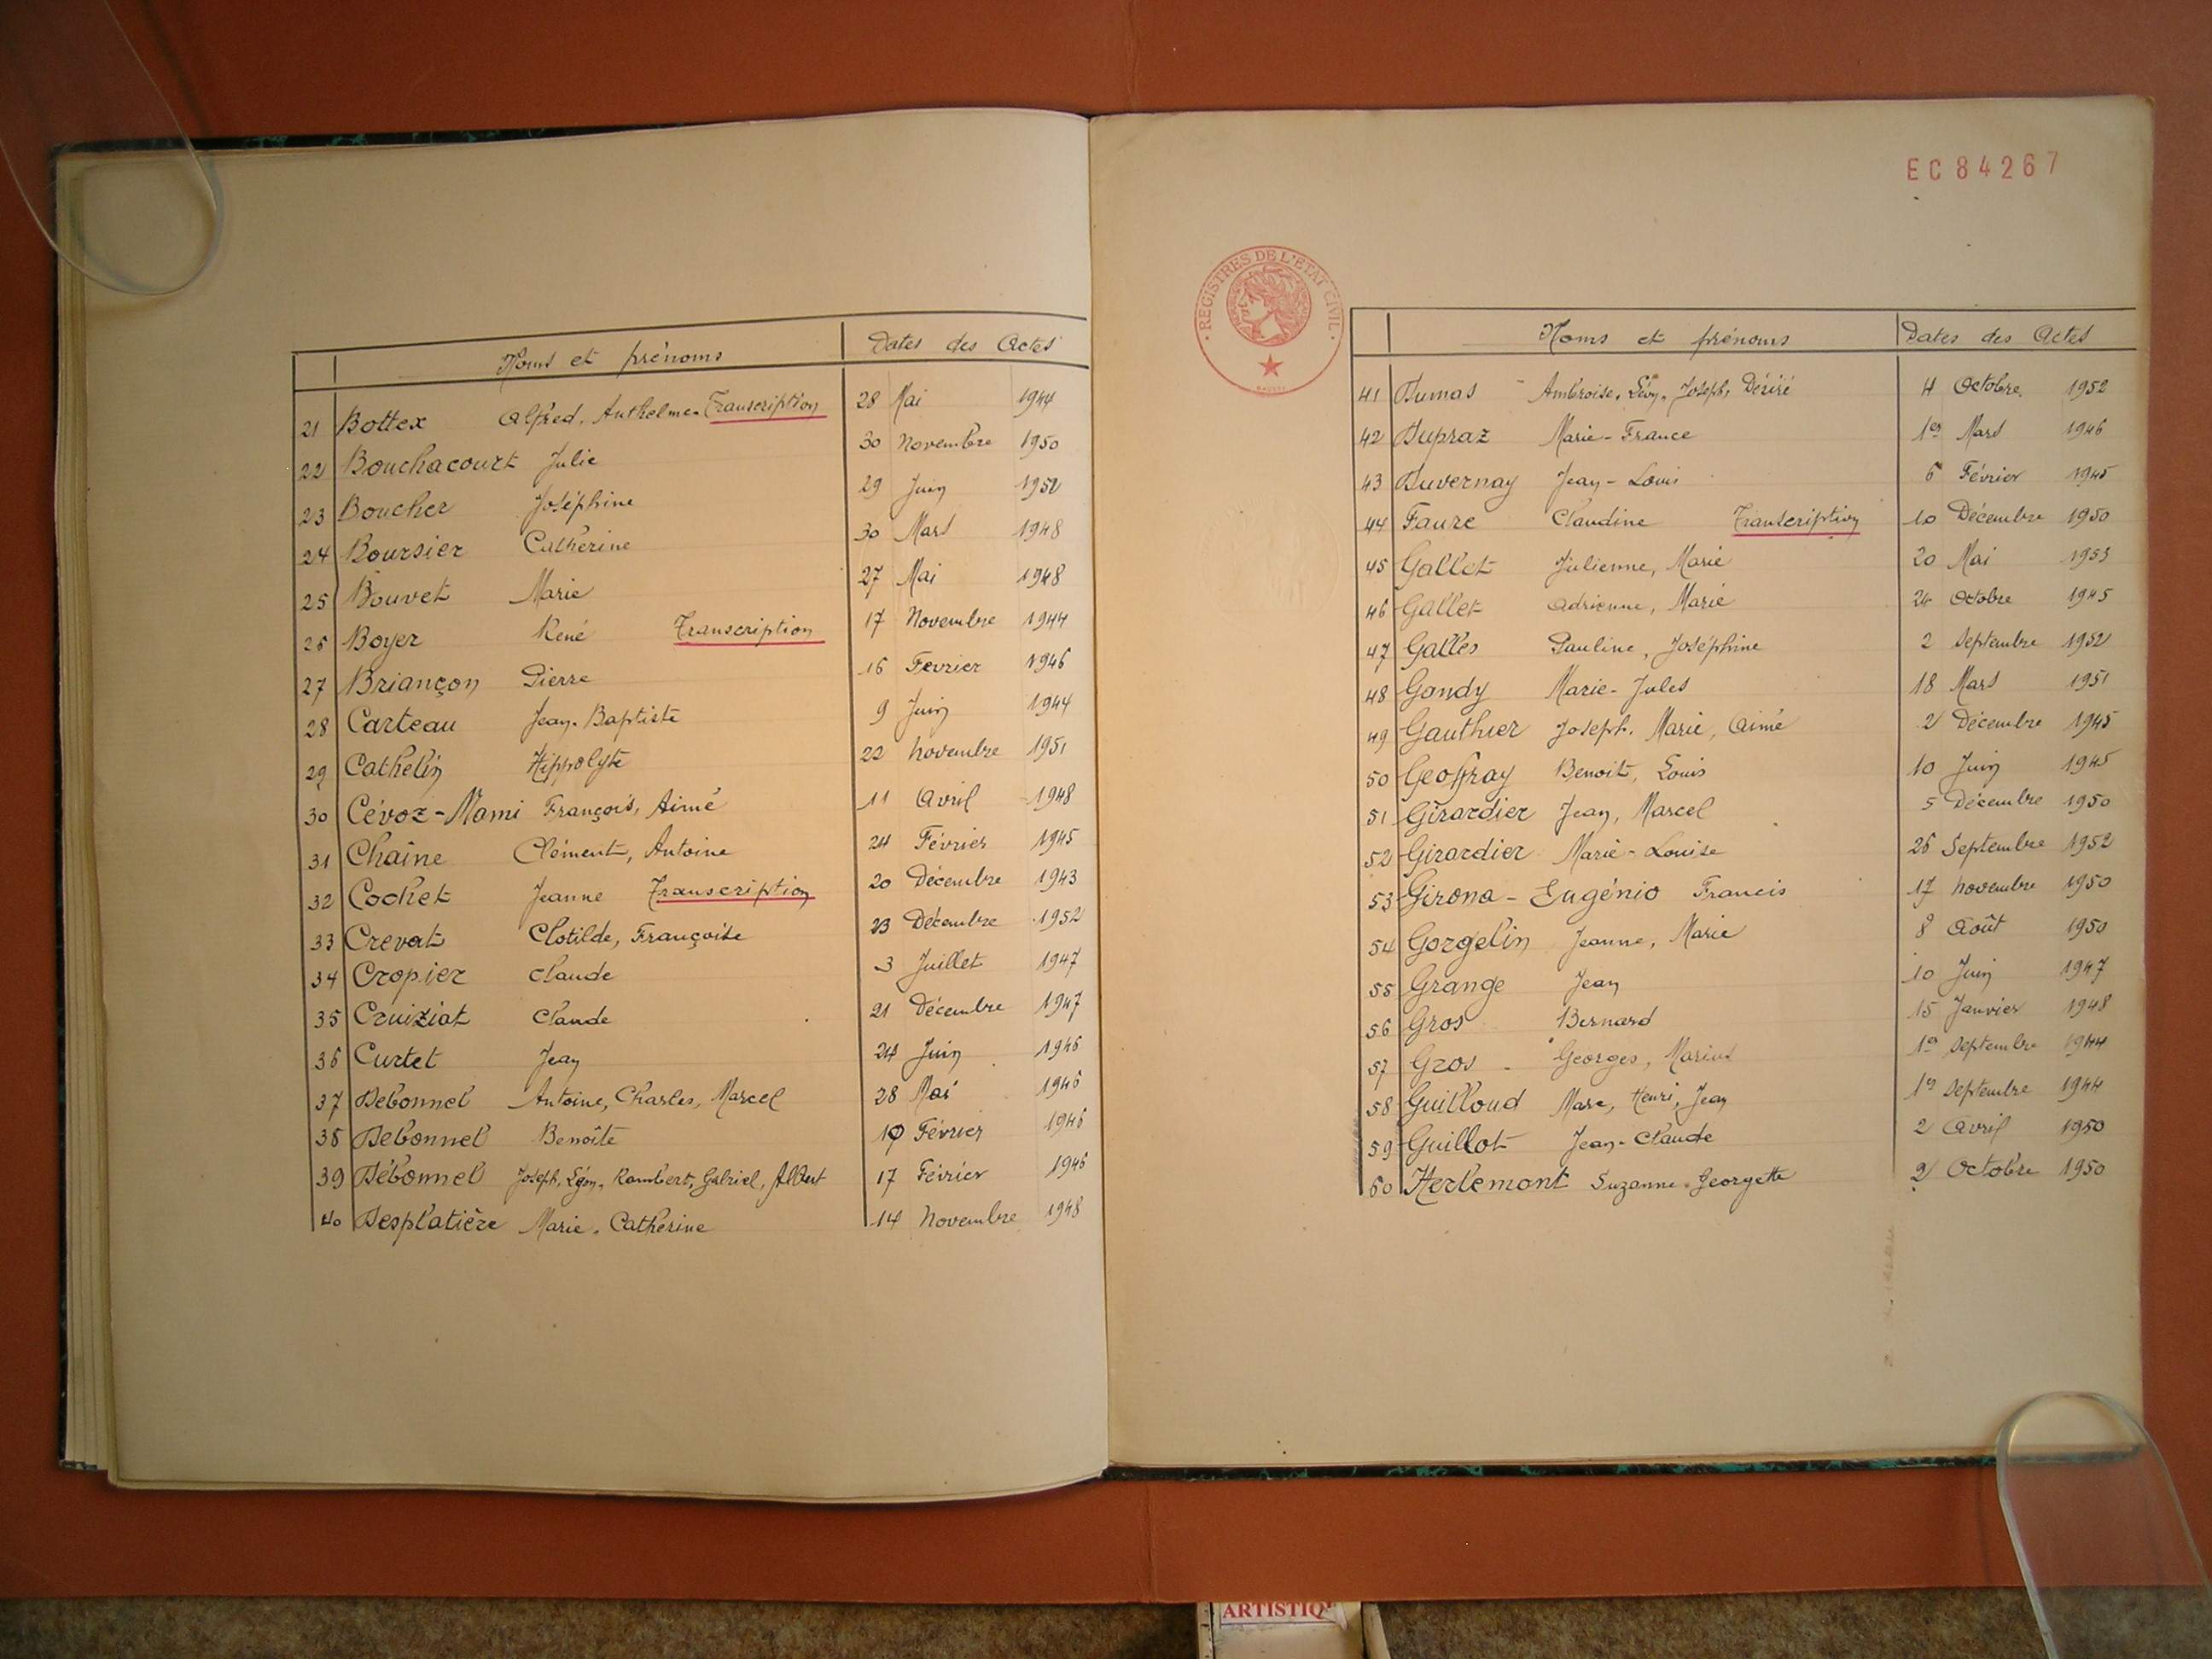 Noms et prénoms Dates des Actes
21 Bottex Alfred, Anthelme. Transcription 28 Mai 1944
22 Bouchacourt Julie 30 Novembre 1950
23 Boucher Joséphine 29 Juin 1952
24 Boursier Catherine 30 Mars 1948
25 Bouvet Marie 27 Mai 1948
26 Boyer René Transcription 17 Novembre 1944
27 Briançon Pierre 16 Fevrier 1946
28 Carteau Jean-Baptiste 9 Juin 1944
29 Cathelin Hippolyte 22 Novembre 1951
30 Cévoz-Mami François, Aimé 11 Avril 1948
31 Chaîne Clément, Antoine 24 Février 1945
32 Cochet Jeanne Transcription 20 Décembre 1943
33 Crevat Clotilde, Françoise 23 Décembre 1952
34 Cropier Claude 3 Juillet 1947
35 Cruiziat Claude 21 Décembre 1947
36 Curtet Jean 24 Juin 1946
37 Debonnel Antoine, Charles, Marcel 28 Mai 1946
38 Debonnel Benoîte Février 1946
39 Débonnel Joseph, Léon, Rambert, Gabriel, Albert 17 Février 1946
40 Desplatière Marie-Catherine 14 Novembre 1948
EC84267
REGISTRES DE L'ETAT CIVIL
Noms et prénoms Dates des Actes
41 Dumas Ambroise, Lévy, Joseph, Désiré 4 Octobre 1952
42 Dupraz Marie-France 1er Mars 1946
43 Duvernay Jean-Louis 6 Février 1945
44 Faure Claudine Transcription 10 Décembre 1950
45 Gallet Julienne, Marie 20 Mai 1953
46 Gallet Adrienne, Marie 24 Octobre 1945
47 Galles Pauline, Joséphine 2 Septembre 1952
48 Gandy Marie-Jules 18 Mars 1951
49 Gauthier Joseph, Marie, Aimé 2 Décembre 1945
50 Geoffray Benoit, Louis 10 Juin 1945
51 Girardier Jean, Marcel 5 Décembre 1950
52 Girardier Marie-Louise 26 Septembre 1952
53 Girona-Eugénio Francis 17 Novembre 1950
54 Gorgelin Jeanne, Marie 8 Août 1950
55 Grange Jean 10 Juin 1947
56 Gros Bernard 15 Janvier 1948
57 Gros Georges, Marius 1er Septembre 1944
58 Guilloud Marc, Henri, Jean 1er Septembre 1944
59 Guillot Jean-Claude 2 Avril 1950
60 Herlemont Suzanne-Georgette 2 Octobre 1950